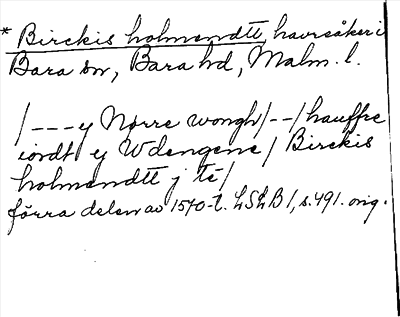 * Birckis holmendtt, havreåker i
Bara sn, Bara hd, Malm. l.
/--- ij Nørre wongh/--/hauffre
iordt ij Wdengene/ Birckis
holmendtt j të/
förra delen av 1570-t. LSLB 1, s. 491. orig.